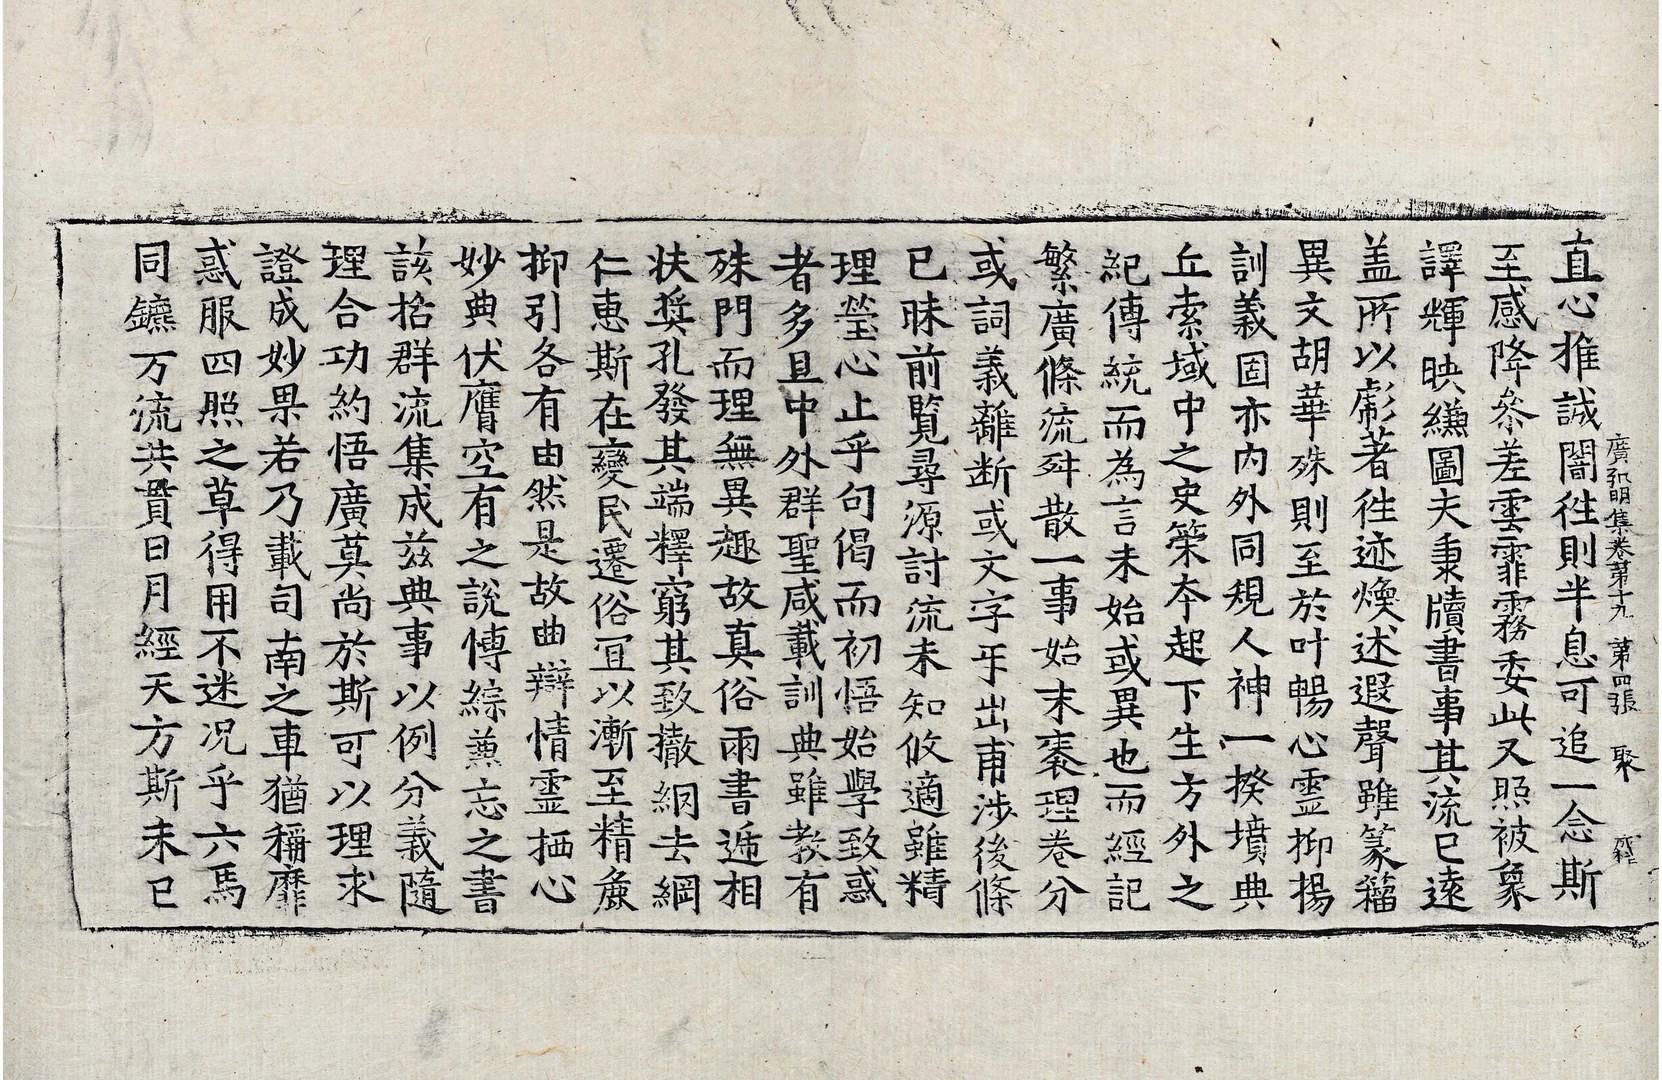 直心推誠闇徃則半息可追一念斯
至感降叅差雲霏霧委此又照被象
譯輝映縑圖夫秉牘書事其流已遠
盖所以彪著徃迹煥述遐聲雖篆籀
異文胡華殊則至於叶暢心靈抑揚
訓義固亦內外同規人神一揆墳典
丘索域中之史策夲起下生方外之
紀傳統而為言未始或異也而經記
繁廣條流舛散一事始末褒理卷分
或詞義離断或文字㸦出甫涉後條
已昧前覧尋源討流未知攸適雖精
理瑩心止乎句偈而初悟始學致惑
者多且中外群聖咸載訓典雖教有
殊門而理無異趣故真俗兩書遞相
扶奬孔發其端釋窮其致撤網去綱
仁惠斯在變民遷俗冝以漸至精麁
抑引各有由然是故曲辯情靈栖心
妙典伏膺空有之說愽綜兼忘之書
該括群流集成兹典事以例分義隨
理合功約悟廣莫尚於斯可以理求
證成妙果若乃載司南之車猶稱靡
惑服四照之草得用不迷况乎六馬
同鑣万流共貫日月經天方斯未已
廣弘明集卷第十九 第四張 聚